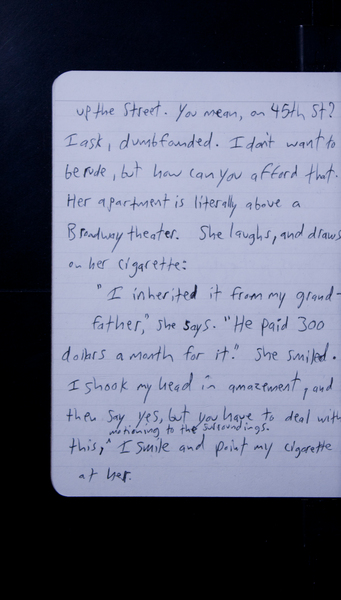 up the street. You mean, on 45th St?
I ask, dumbfounded. I don't want to
be rude, but how can you afford that.
Her apartment is literally above a
Broadway theater. She laughs, and draws
on her cigarette:
"I inherited it from my grand-
father," she says. "He paid 300
dollars a month for it." She smiled.
I shook my head in amazement, and
then say yes, but you have to deal with
motioning to the surroundings.
this,^ I smile and point my cigarette
at her.